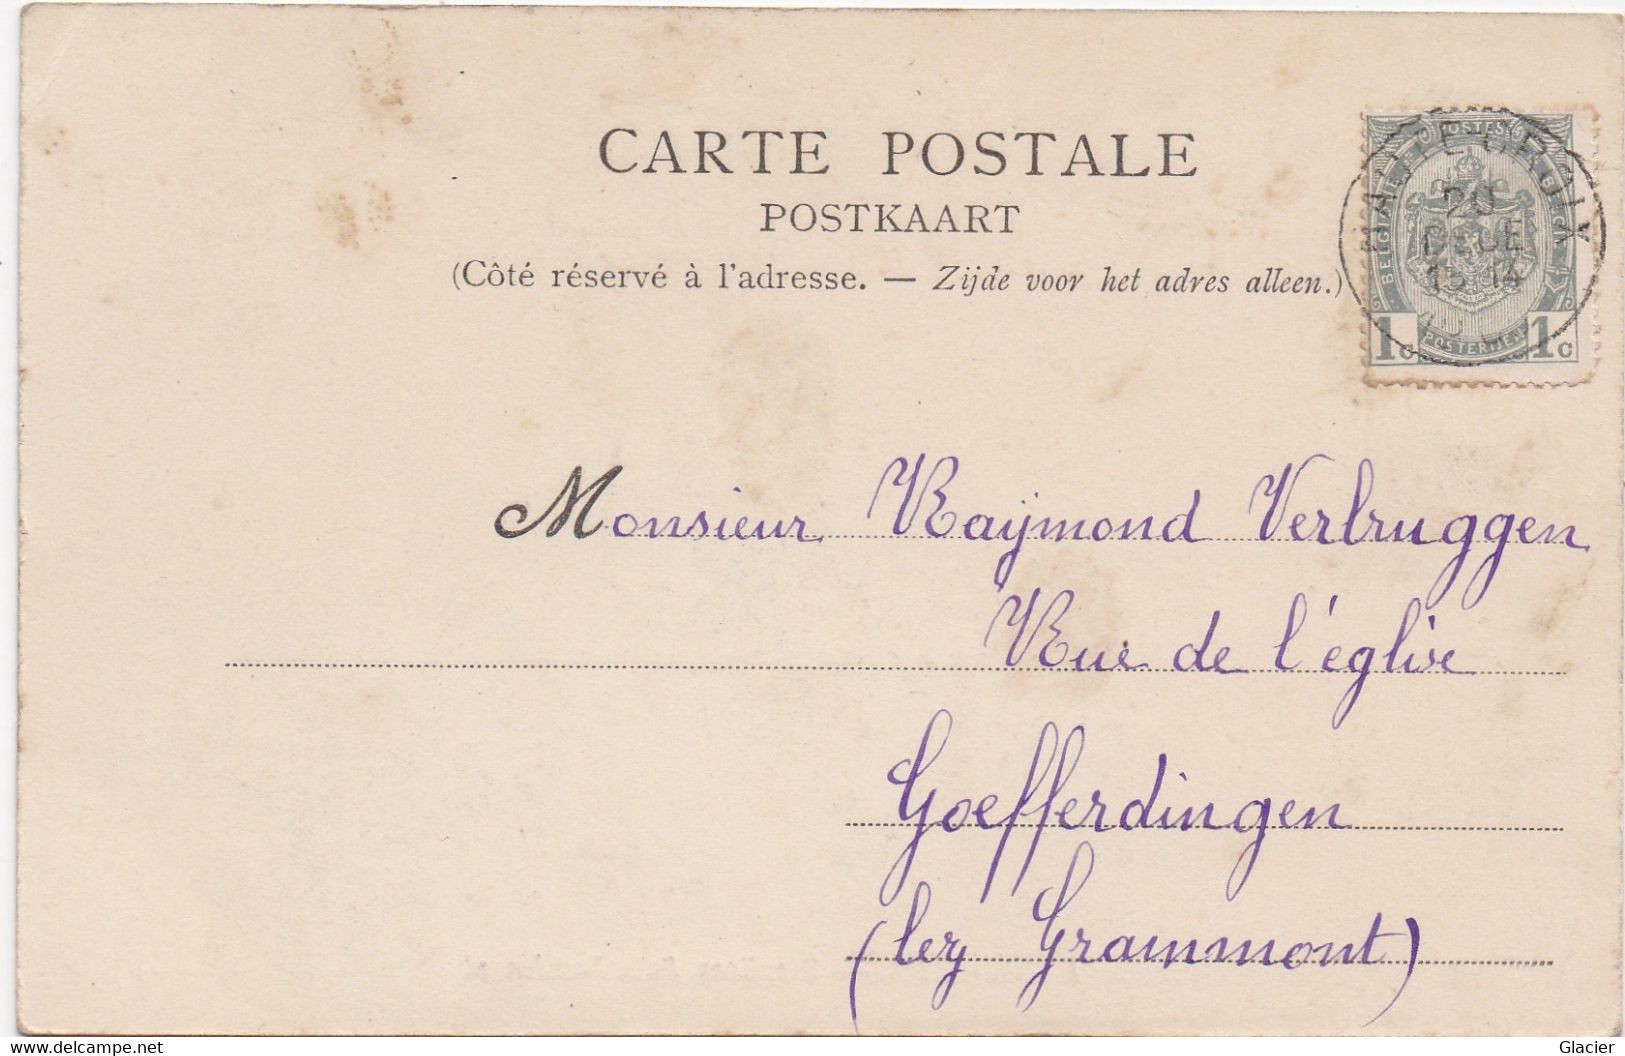 CARTE POSTALE
POSTKAART
(Côté réservé à l'adresse. — Zijde voor het adres alleen.)
HAUTE-CROIX
20
DECE
13-14
POSTES
BELGIQUE BELGIË
1c POSTERIJEN 1c
Monsieur Raÿmond Verbruggen
Rue de l'église
Goefferdingen
(lez Grammont)
www.delcampe.net
Glacier